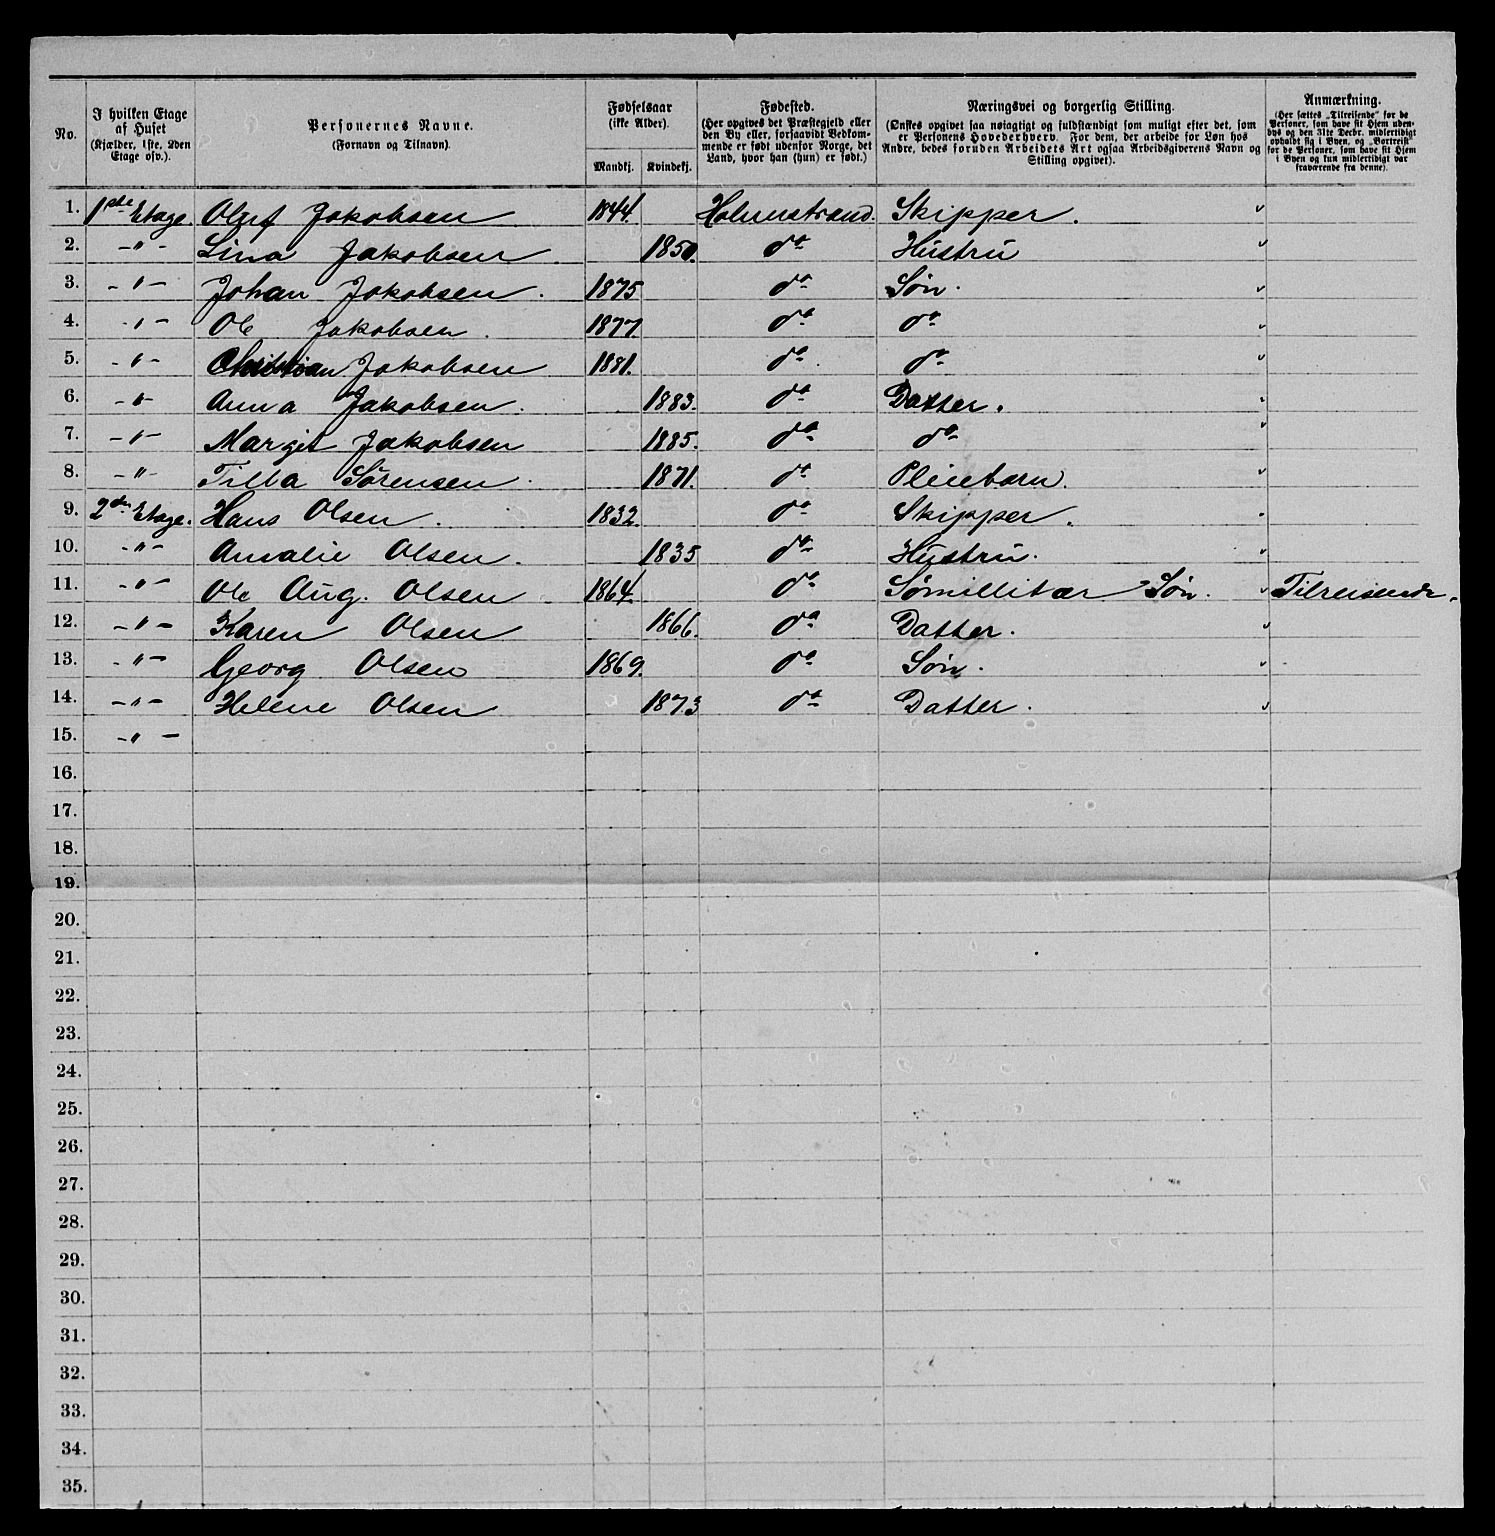 No. | I hvilken Etage af Huset (Kjælder, 1ste, 2den Etage osv.). | Personernes Navne. (Fornavn og Tilnavn). | Fødselsaar (ikke Alder). Mandkj. | Kvindekj. | Fødested. (Her opgives det Præstegjeld eller den By eller, forsaavidt Bedkommende er født udenfor Norge, det Land, hvor han (hun) er født.) | Næringsvei og borgerlig Stilling. (Ønskes opgivet saa nøiagtigt og fuldstændigt som muligt efter det, som er Personens Hovederhverv. For dem, der arbeide for Løn hos Andre, bedes foruden Arbeidets Art ogsaa Arbeidsgiverens Navn og Stilling opgivet). | Anmærkning. (Her sættes „Tilreisende" for de Personer, som have sit Hjem udenbys og den 31te Decbr. midlertidigt opholdt sig i Byen, og „Bortreist" for de Personer, som have sit Hjem i Byen og kun midlertidigt var fraværende fra denne).
1. 1ste Etage. Oluf Jakobsen 1844. Holmestrand. Skipper.
2. -"- Lina Jakobsen. 1850. do Hustru
3. -"- Johan Jakobsen. 1875 do Søn.
4. -"- Ole Jakobsen. 1877. do do
5. -"- Christian Jakobsen 1881. do. do
6. -"- Anna Jakobsen. 1883. do Datter.
7. -"- Margit Jakobsen 1885. do do
8. -"- Tilla Sørensen. 1871. do Pleiebarn.
9. 2den Etage. Hans Olsen. 1832. do Skipper.
10. -"- Amalie Olsen. 1835 do Hustru.
11. -"- Ole Aug. Olsen. 1864. do Sømillitær Søn. Tilreisende.
12. -"- Karen Olsen 1866. do Datter.
13. -"- Georg Olsen 1869. do Søn.
14. -"- Helene Olsen 1873 do Datter.
15. -"-
16.
17.
18.
19.
20.
21.
22.
23.
24.
25.
26.
27.
28.
29.
30.
31.
32.
33.
34.
35.